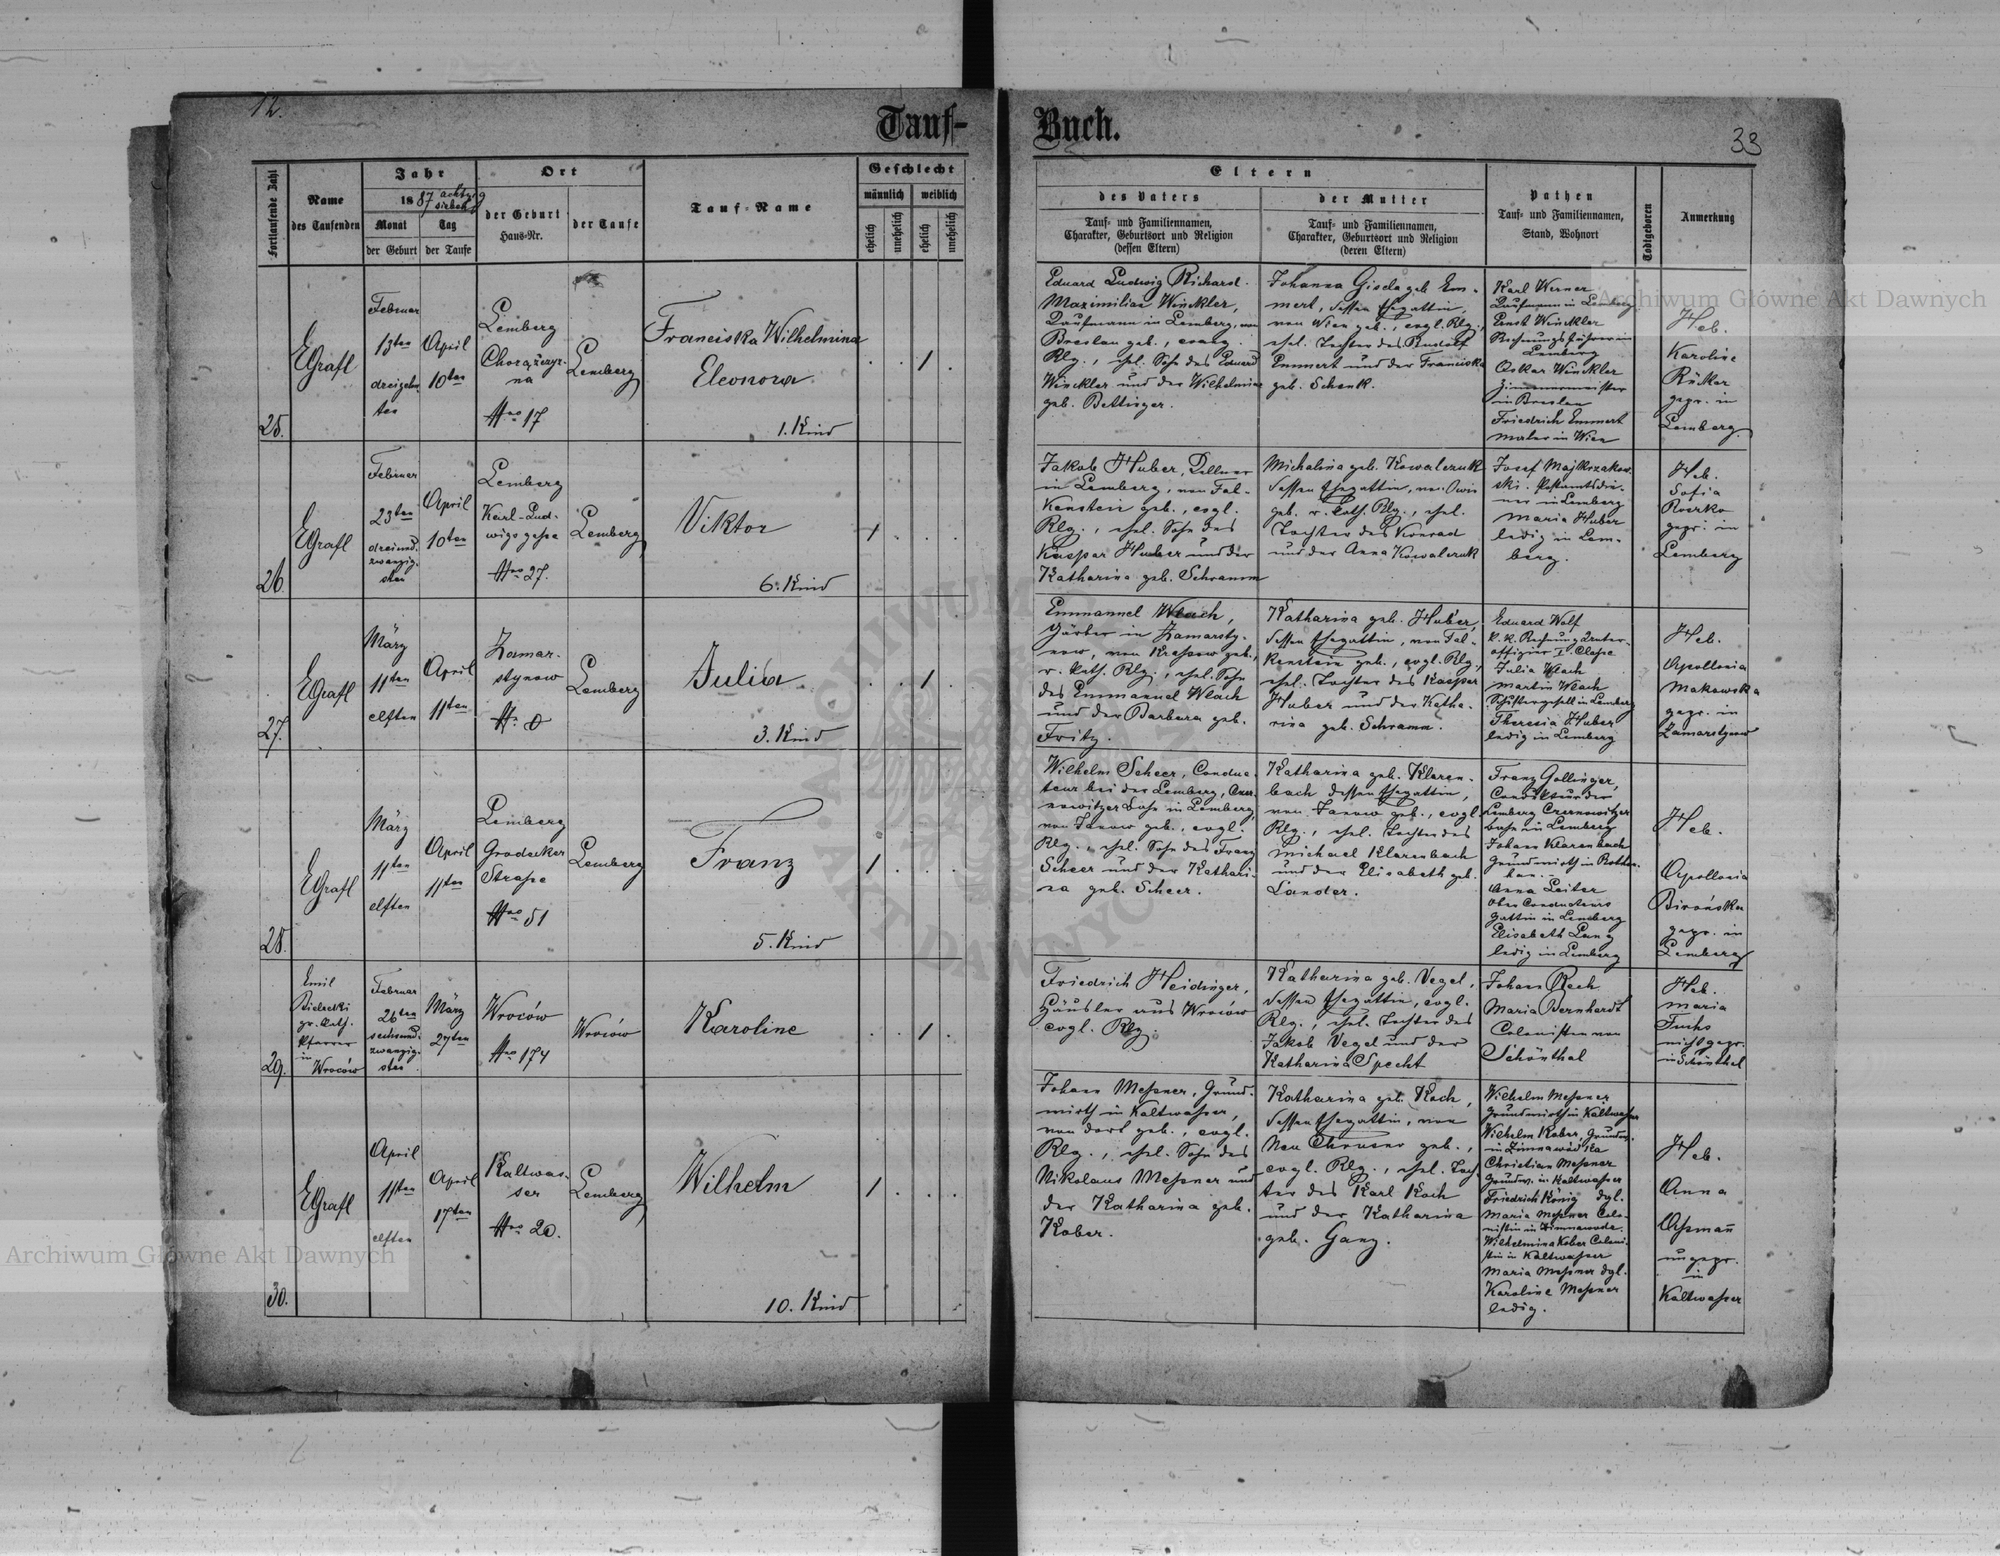 12.
Tauf-
Buch.
33
Fortlaufende Zahl
Name
des Taufenden
Jahr
1887 achtzig sieben
Monat
Tag
der Geburt
der Taufe
Ort
der Geburt
Haus-Nr.
der Taufe
Tauf-Name
Geschlecht
männlich
weiblich
ehelich
unehelich
ehelich
unehelich
Eltern
des Vaters
Tauf- und Familiennamen,
Charakter, Geburtsort und Religion
(dessen Eltern)
der Mutter
Tauf- und Familiennamen,
Charakter, Geburtsort und Religion
(deren Eltern)
Pathen
Tauf- und Familiennamen,
Stand, Wohnort
Todtgeboren
Anmerkung
25.
EGrafl
Februar
13ten
dreizehn
ten
April
10ten
Lemberg
Chorążczyz-
na
Nro 17
Lemberg
Franciska Wilhelmina
Eleonora
1. Kind
1
Eduard Ludwig Richard
Maximilian Winckler,
Kaufmann in Lemberg, von
Breslau geb., evang.
Rlg., ehel. Sohn des Eduard
Winckler und der Wilhelmine
geb. Bettinger.
Johanna Gisela geb. Em-
mert, dessen Ehegattin,
von Wien geb., evgl. Rlg.,
ehel. Tochter des Rudolf
Emmert und der Franciska
geb. Schenk.
Karl Werner
Kaufmann in Lemberg
Ernst Winckler
Rechnungsführer in
Lemberg
Oskar Winckler
Zimmermeister
in Breslau
Friedrich Emmert
Maler in Wien
Heb.
Karoline
Rücker
gepr. in
Lemberg.
26.
EGrafl
Februar
23ten
dreiund-
zwanzig-
sten
April
10ten
Lemberg
Karl-Lud-
wigsgasse
Nro 27.
Lemberg
Viktor
6. Kind
1
Jakob Huber, Kellner
in Lemberg, von Fal-
kenstein geb., evgl.
Rlg., ehel. Sohn des
Kaspar Huber und der
Katharina geb. Schramm
Michalina geb. Kowalczuk
dessen Ehegattin, von
geb. r. kath. Rlg., ehel.
Tochter des Konrad
und der Anna Kowalczuk
Josef
ski. Postamtsdie-
ner in Lemberg
Maria Huber
ledig in Lem-
berg.
Heb.
Sofia
gepr. in
Lemberg
27.
EGrafl
März
11ten
elften
April
11ten
Zamar-
stynow
N. 0
Lemberg
Julia
3. Kind
1
Emmanuel Wlach,
Gärber in Zamarsty-
now, von geb.,
r. kath. Rlg., ehel. Sohn
des Emmanuel Wlach
und der Barbara geb.
Fritz.
Katharina geb. Huber,
dessen Ehegattin, von Fal-
kenstein geb., evgl. Rlg.,
ehel. Tochter des Kaspar
Huber und der Katha-
rina geb. Schramm.
Eduard Wolf
k. k. Rechnungsunter-
offizier I. Classe
Julia Wlach
Martin Wlach
in Lemberg
Theresia Huber
ledig in Lemberg
Heb.
Apollonia
Makowska
gepr. in
Zamarstynow
28.
EGrafl
März
11ten
elften
April
11ten
Lemberg
Grodeker
Straße
Nro 51
Lemberg
Franz
5. Kind
1
Wilhelm Scheer, Conduc-
teur bei der Lemberg, Czer-
nowitzer Bahn in Lemberg,
von Janow geb., evgl.
Rlg., ehel. Sohn des Franz
Scheer und der Kathari-
na geb. Scheer.
Katharina geb. Klaren-
bach dessen Ehegattin,
von Janow geb., evgl.
Rlg., ehel. Tochter des
Michael Klarenbach
und der Elisabeth geb.
Lander.
Franz Gollinger,
Conducteur der
Lemberg Czernowitzer
Bahn in Lemberg
Johann Klarenbach
Grundwirth in
Anna Leiter
Ober Conducteurs
Gattin in Lemberg
Elisabeth Lang
ledig in Lemberg
Heb.
Apollonia
gepr. in
Lemberg
29.
Emil
Bielecki
gr. kath.
Pfarrer
in
Wroców
Februar
26ten
sechsund-
zwanzig-
sten
März
27ten
Wroców
Nro 174
Wroców
Karoline
1
Friedrich Heidinger,
Häusler aus Wroców
evgl. Rlg.
Katharina geb. Vegel,
dessen Ehegattin, evgl.
Rlg., ehel. Tochter des
Jakob Vegel und der
Katharina Specht
Johann Rech
Maria Bernhardt
Colonisten von
Schönthal
Heb.
Maria
Fuchs
nicht gepr.
in Schönthal
30.
EGrafl
April
11ten
elften
April
17ten
Kaltwas-
ser
Nro 20.
Lemberg
Wilhelm
10. Kind
1
Johann Meßner, Grund-
wirth in Kaltwasser,
von dort geb., evgl.
Rlg., ehel. Sohn des
Nikolaus Meßner und
der Katharina geb.
Kober.
Katharina geb. Koch,
dessen Ehegattin, von
Neu Chrusno geb.,
evgl. Rlg., ehel. Toch-
ter des Karl Koch
und der Katharina
geb. Ganz.
Wilhelm Meßner
Grundwirth in Kaltwasser
Wilhelm Kober, Grundw.
in Zimnawódka
Christian Meßner
Grundw. in Kaltwasser
Friedrich König dgl.
Maria Meßner Colo-
nistin in Zimnawoda
Wilhelmina Kober Coloni-
stin in Kaltwasser
Maria Meßner dgl.
Karoline Meßner
ledig.
Heb.
Anna
ungepr.
in
Kaltwasser
Archiwum Główne Akt Dawnych
Archiwum Główne Akt Dawnych